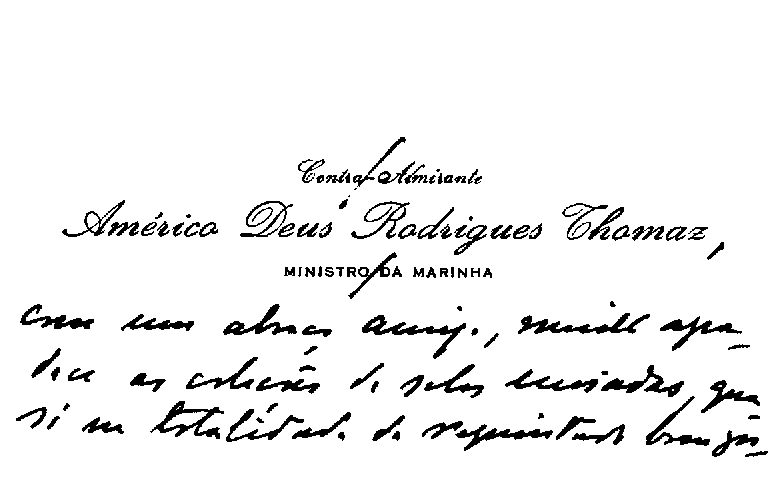 Contra-Almirante
Américo Deus Rodrigues Thomaz,
MINISTRO DA MARINHA
com um abraço amigo, muito agra-
dece as colecções de selos enviadas, qua
si na totalidade de